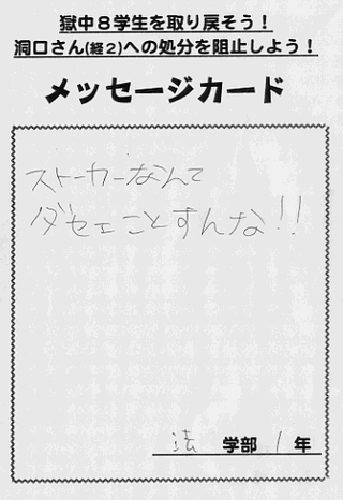 獄中8学生を取り戻そう！
洞口さん(経2)への処分を阻止しよう！
メッセージカード
ストーカーなんて
ダセェことすんな!!
法 学部 1 年